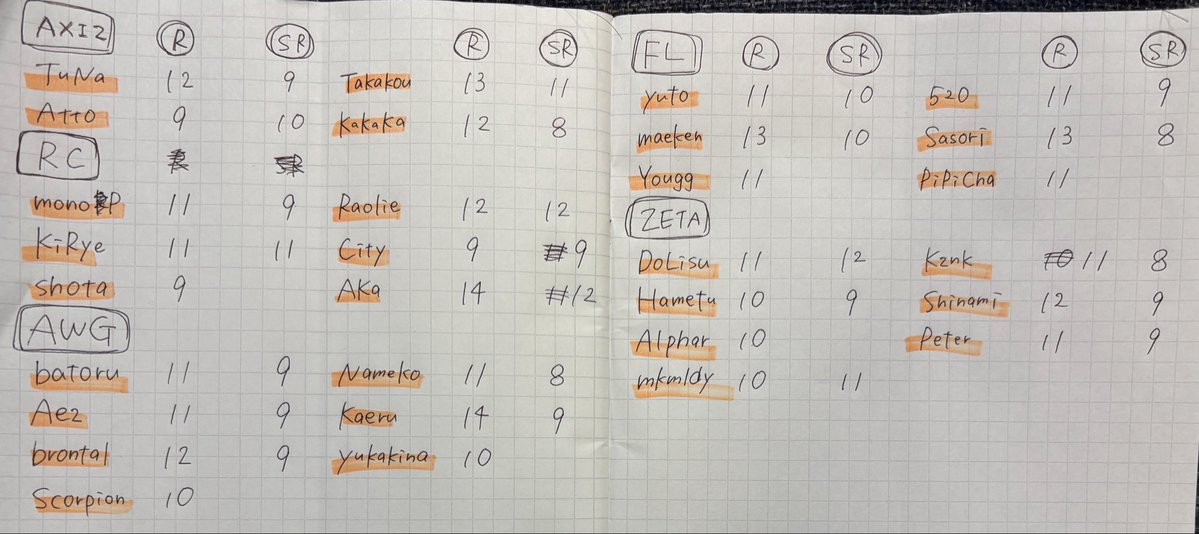 AXIZ R SR R SR
TuNa 12 9 Takakou 13 11
Atto 9 10 Kakaka 12 8
RC
monoP 11 9 Raolie 12 12
KiRye 11 11 City 9 9
shota 9 AKa 14 12
AWG
batoru 11 9 Nameko 11 8
Aez 11 9 Kaeru 14 9
brontal 12 9 yukakina 10
Scorpion 10
FL R SR R SR
yuto 11 10 520 11 9
maeken 13 10 Sasori 13 8
Yougg 11 PiPiCha 11
ZETA
DoLisu 11 12 Kznk 11 8
Hametu 10 9 Shinami 12 9
Alphar 10 Peter 11 9
mkmldy 10 11